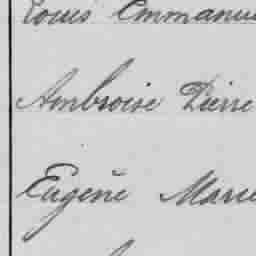 Louis Emmanu
Ambroise Pierre
Eugène Marie